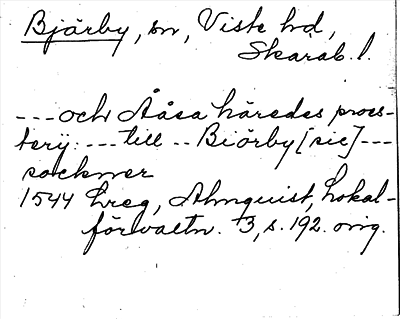 Bjärby, sn, Viste hd,
Skarab. l.
--- och Ååsa häredes proes-
terij: --- till -- Biörby [sic] ---
sockner
1544 Lreg, Almquist, Lokal-
förvaltn. 3, s. 192. orig.